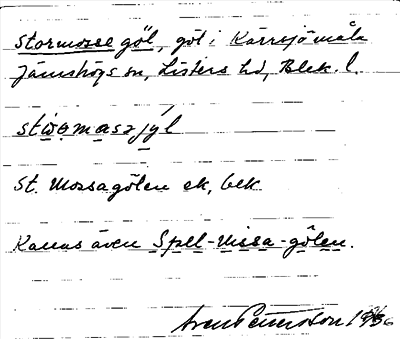 Stormosse göl, göl i Kärrsjömåla
Jämshögs sn, Listers hd, Blek. l.
stwomaszjyl
St. Mossagölen ek, bek
Kallas även Spel-Missa-gölen.
Sven Petersson 1936